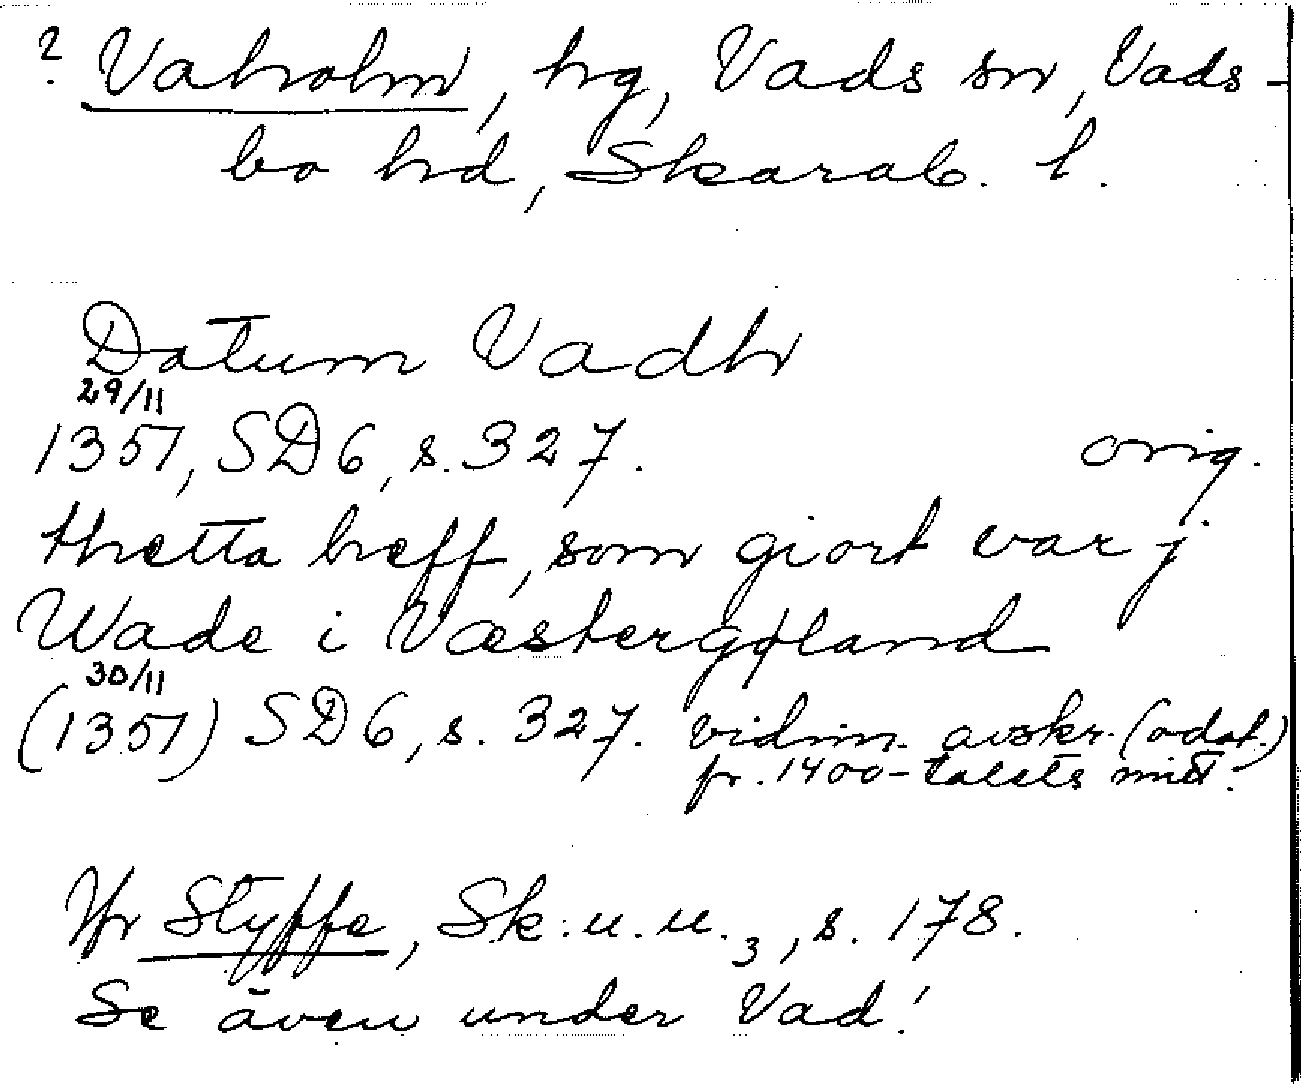 ? Vaholm, hg, Vads sn, Vads-
bo hd, Skarab. l.
Datum Vadh
29/11
1357, SD6, s. 327. orig.
thetta breff, som giort var j
Wade i Væstergøtland
30/11
(1357) SD6, s. 327. vidim. avskr. (odat.)
fr. 1400-talets mitt.
Jfr Styffe, Sk.u.u.3, s. 178.
Se även under Vad!